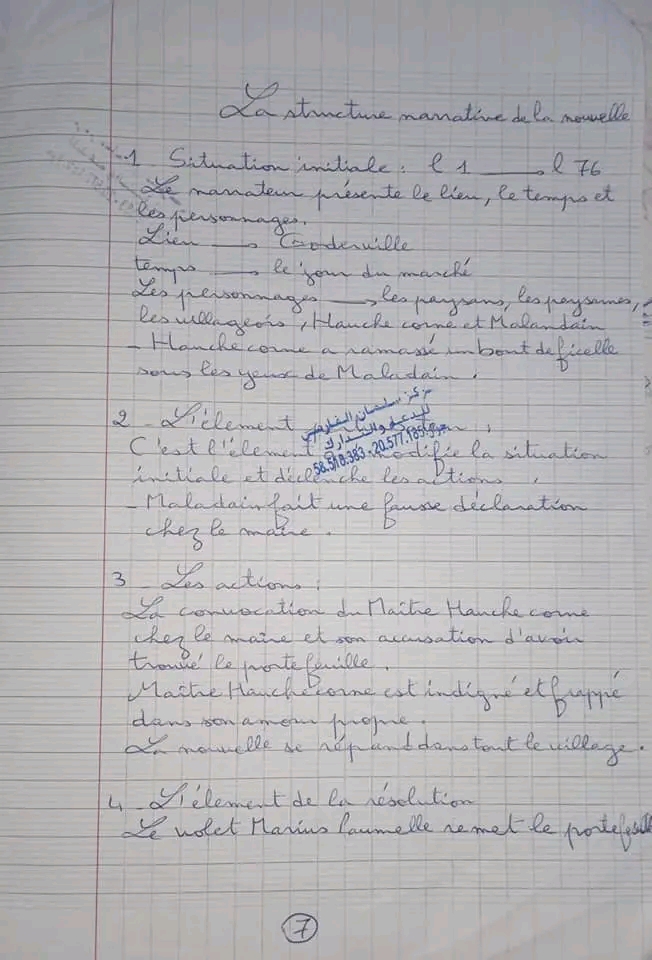 La structure narrative de la nouvelle
1_ Situation initiale : l 1 → l 76
Le narrateur présente le lieu, le temps et
les personnages.
Lieu → Goderville
temps → le jour du marché
Les personnages → les paysans, les paysannes,
les villageois, Hauchecorne et Malandain
- Hauchecorne a ramassé un bout de ficelle
sous les yeux de Maladain.
2_ L'élement
C'est l'élement modifie la situation
initiale et déclenche les actions.
- Maladain fait une fausse déclaration
chez le maire.
مركز سليمان
للدعم والتدارك
58.518.383 - 20.577.185
3_ Les actions :
La convocation du Maître Hauchecorne
chez le maire et son accusation d'avoir
trouvé le portefeuille.
Maître Hauchecorne est indigné et frappé
dans son amour propre.
La nouvelle se répand dans tout le village.
4_ L'élement de la résolution
Le valet Marius Paumelle remet le portefeuill
7